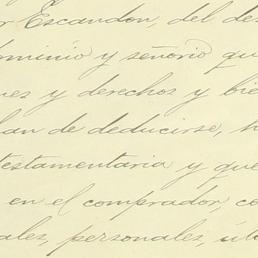 r Escandon, del de
dominio y señorio qu
es y derechos y bie
lan de deducirse, h
testamentaria y que
en el comprador, c
ales, personales, úti